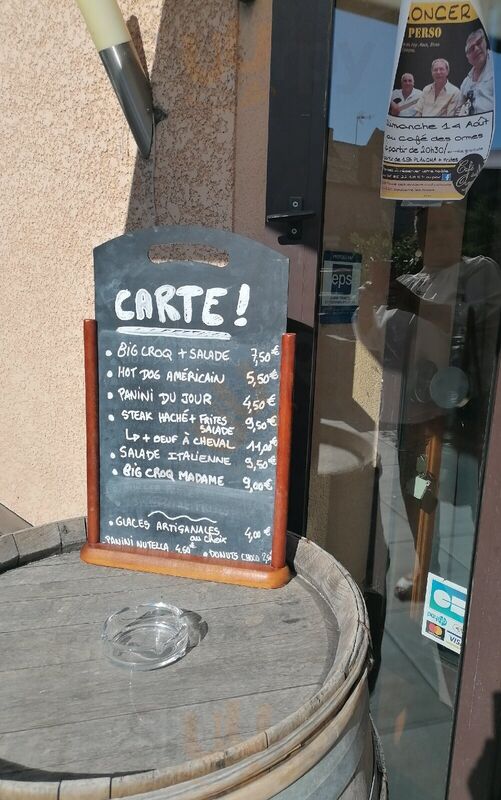 CARTE!
• BIG CROQ + SALADE 7,50€
• HOT DOG AMÉRICAIN 5,50€
• PANINI DU JOUR 4,50€
• STEAK HACHÉ + FRITES SALADE 9,50€
↳ + OEUF À CHEVAL 11,00€
• SALADE ITALIENNE 9,50€
• BIG CROQ MADAME 9,00€
• GLACES ARTISANALES au choix 4,00€
PANINI NUTELLA 4,50€ • DONUTS CHOCO
CONCER
PERSO
Dimanche 14 Août
au café des ormes
à partir de 20h30/
à partir de 19h PLANCHA + frites
eps
CB
VISA